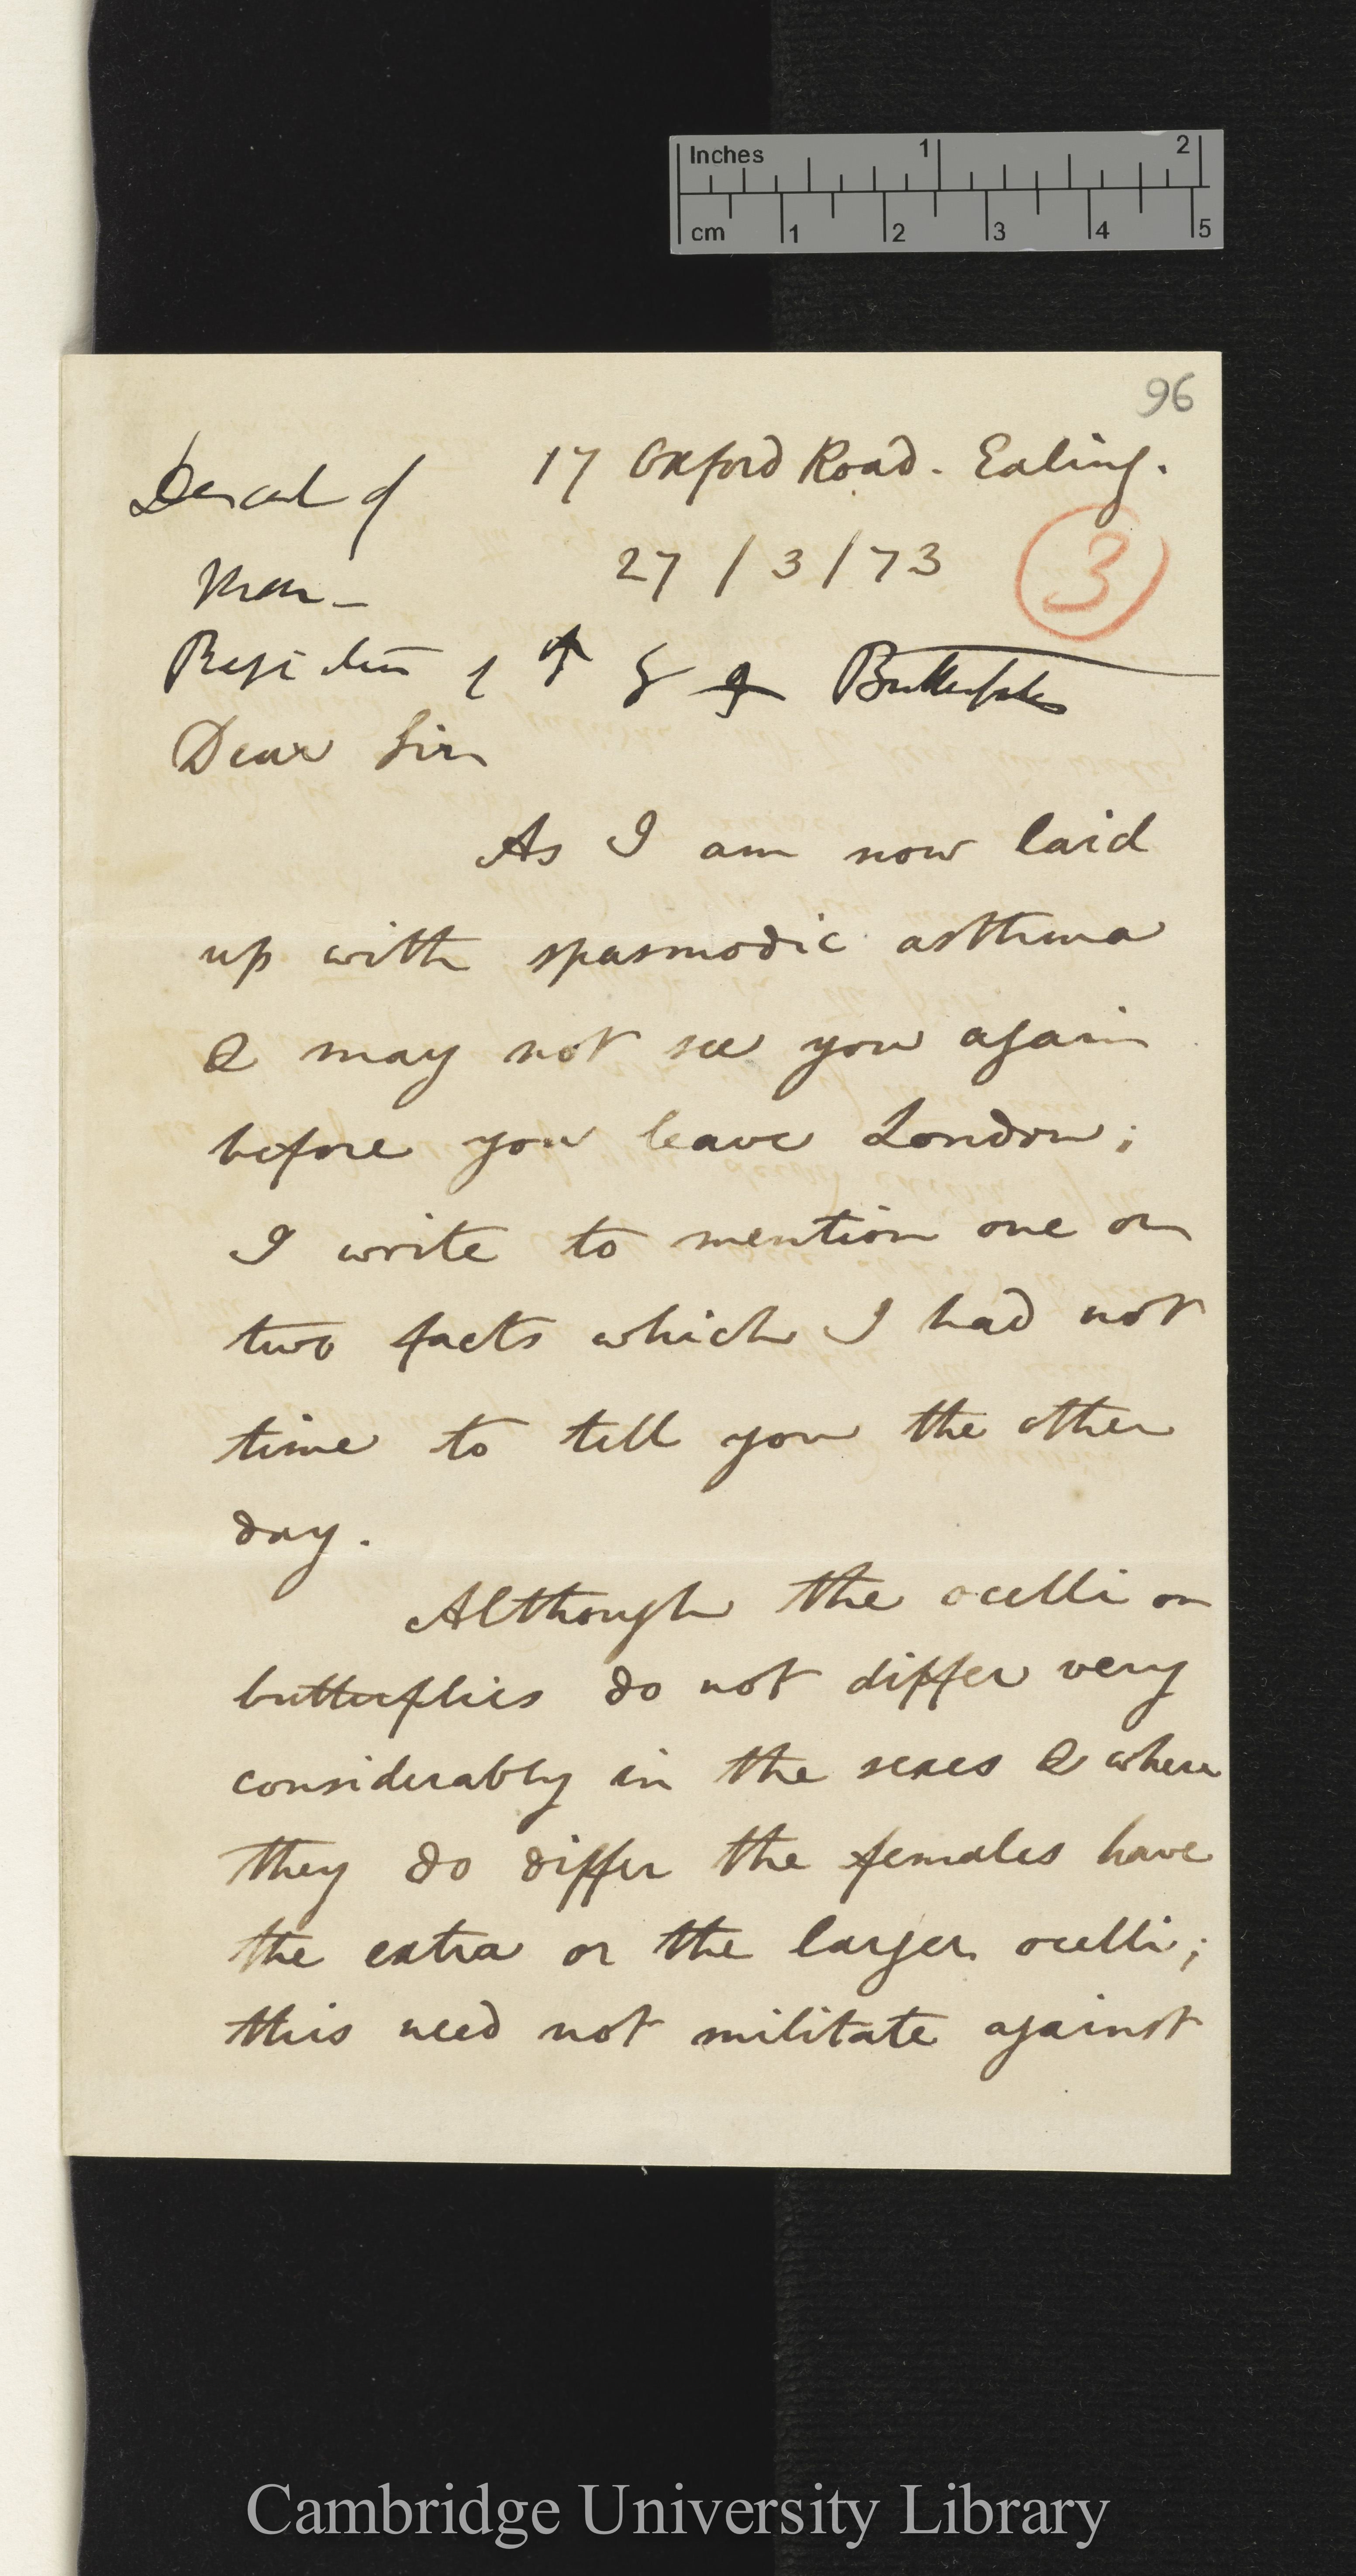 Inches 1 2
cm 1 2 3 4 5
96
17 Oxford Road. Ealing.
Descent of
27/3/73
3
Man—
♂ & ♀ Butterflies
Dear Sir
As I am now laid
up with spasmodic asthma
& may not see you again
before you leave London;
I write to mention one or
two facts which I had not
time to tell you the other
day.
Although the ocelli on
butterflies do not differ very
considerably in the sexes & where
they do differ the females have
the extra or the larger ocelli;
this need not militate against
Cambridge University Library